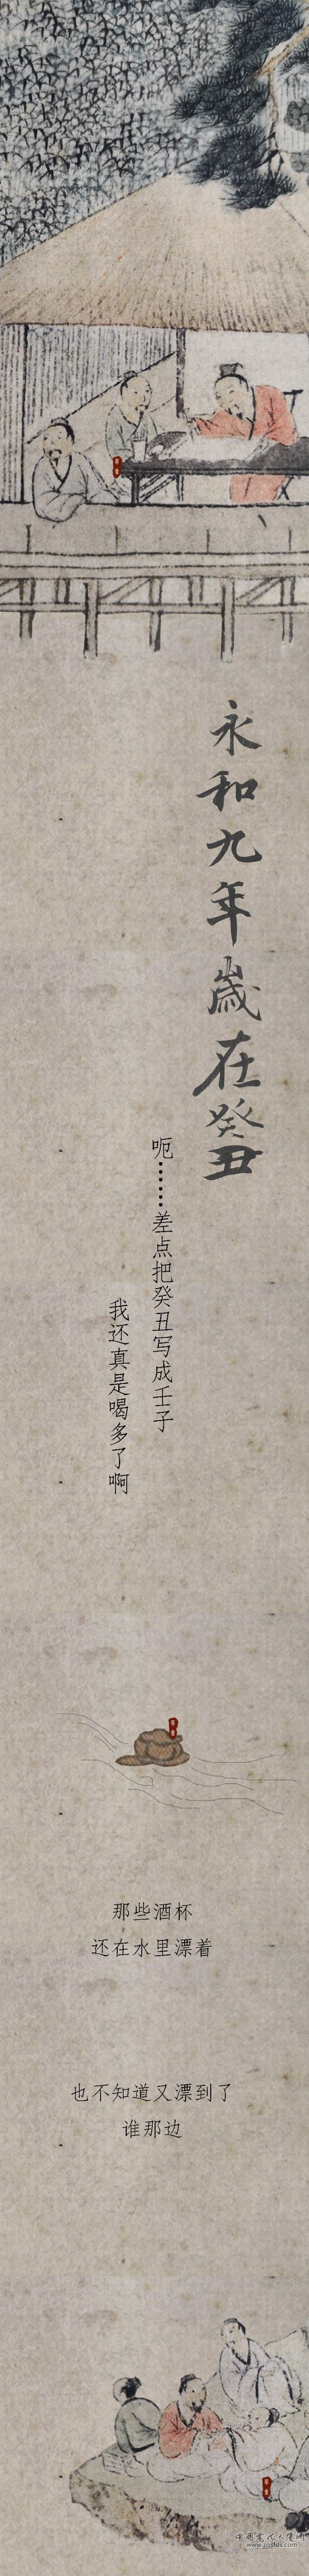 永和九年歲在癸丑
呃……差点把癸丑写成壬子
我还真是喝多了啊
那些酒杯
还在水里漂着
也不知道又漂到了
谁那边